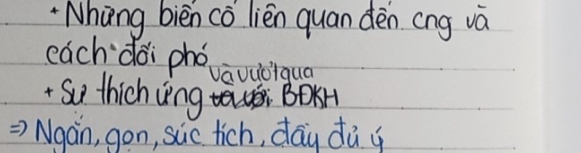 + Những biến cố liên quan đến cng và
cách đối phó và vượt qua
+ Sự thích ứng BĐKH
=> Ngắn, gọn, súc tích, đầy đủ ý